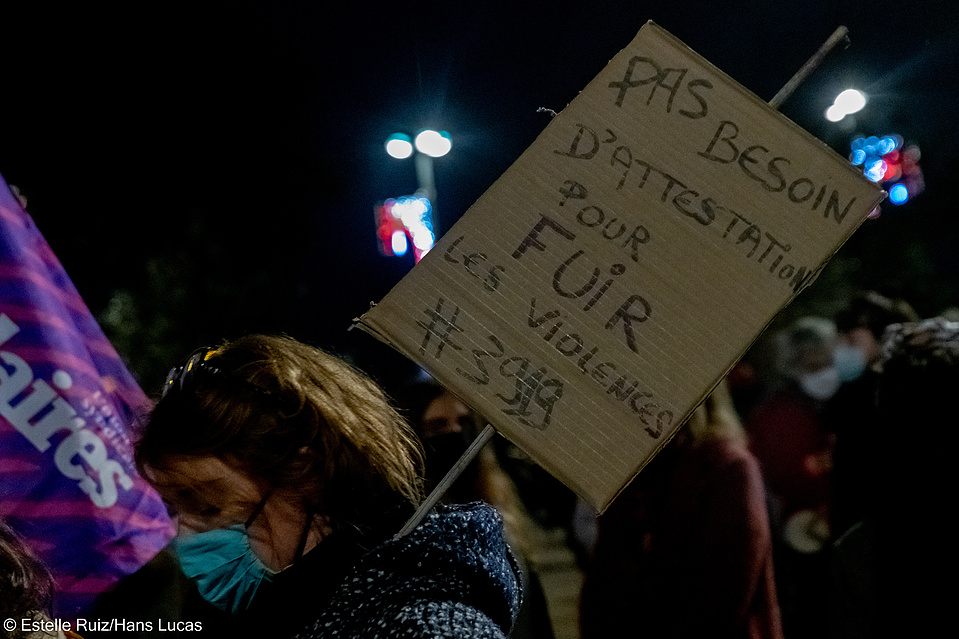 PAS BESOIN
D'ATTESTATION
POUR
FUIR
LES VIOLENCES
#3919
laires
© Estelle Ruiz/Hans Lucas